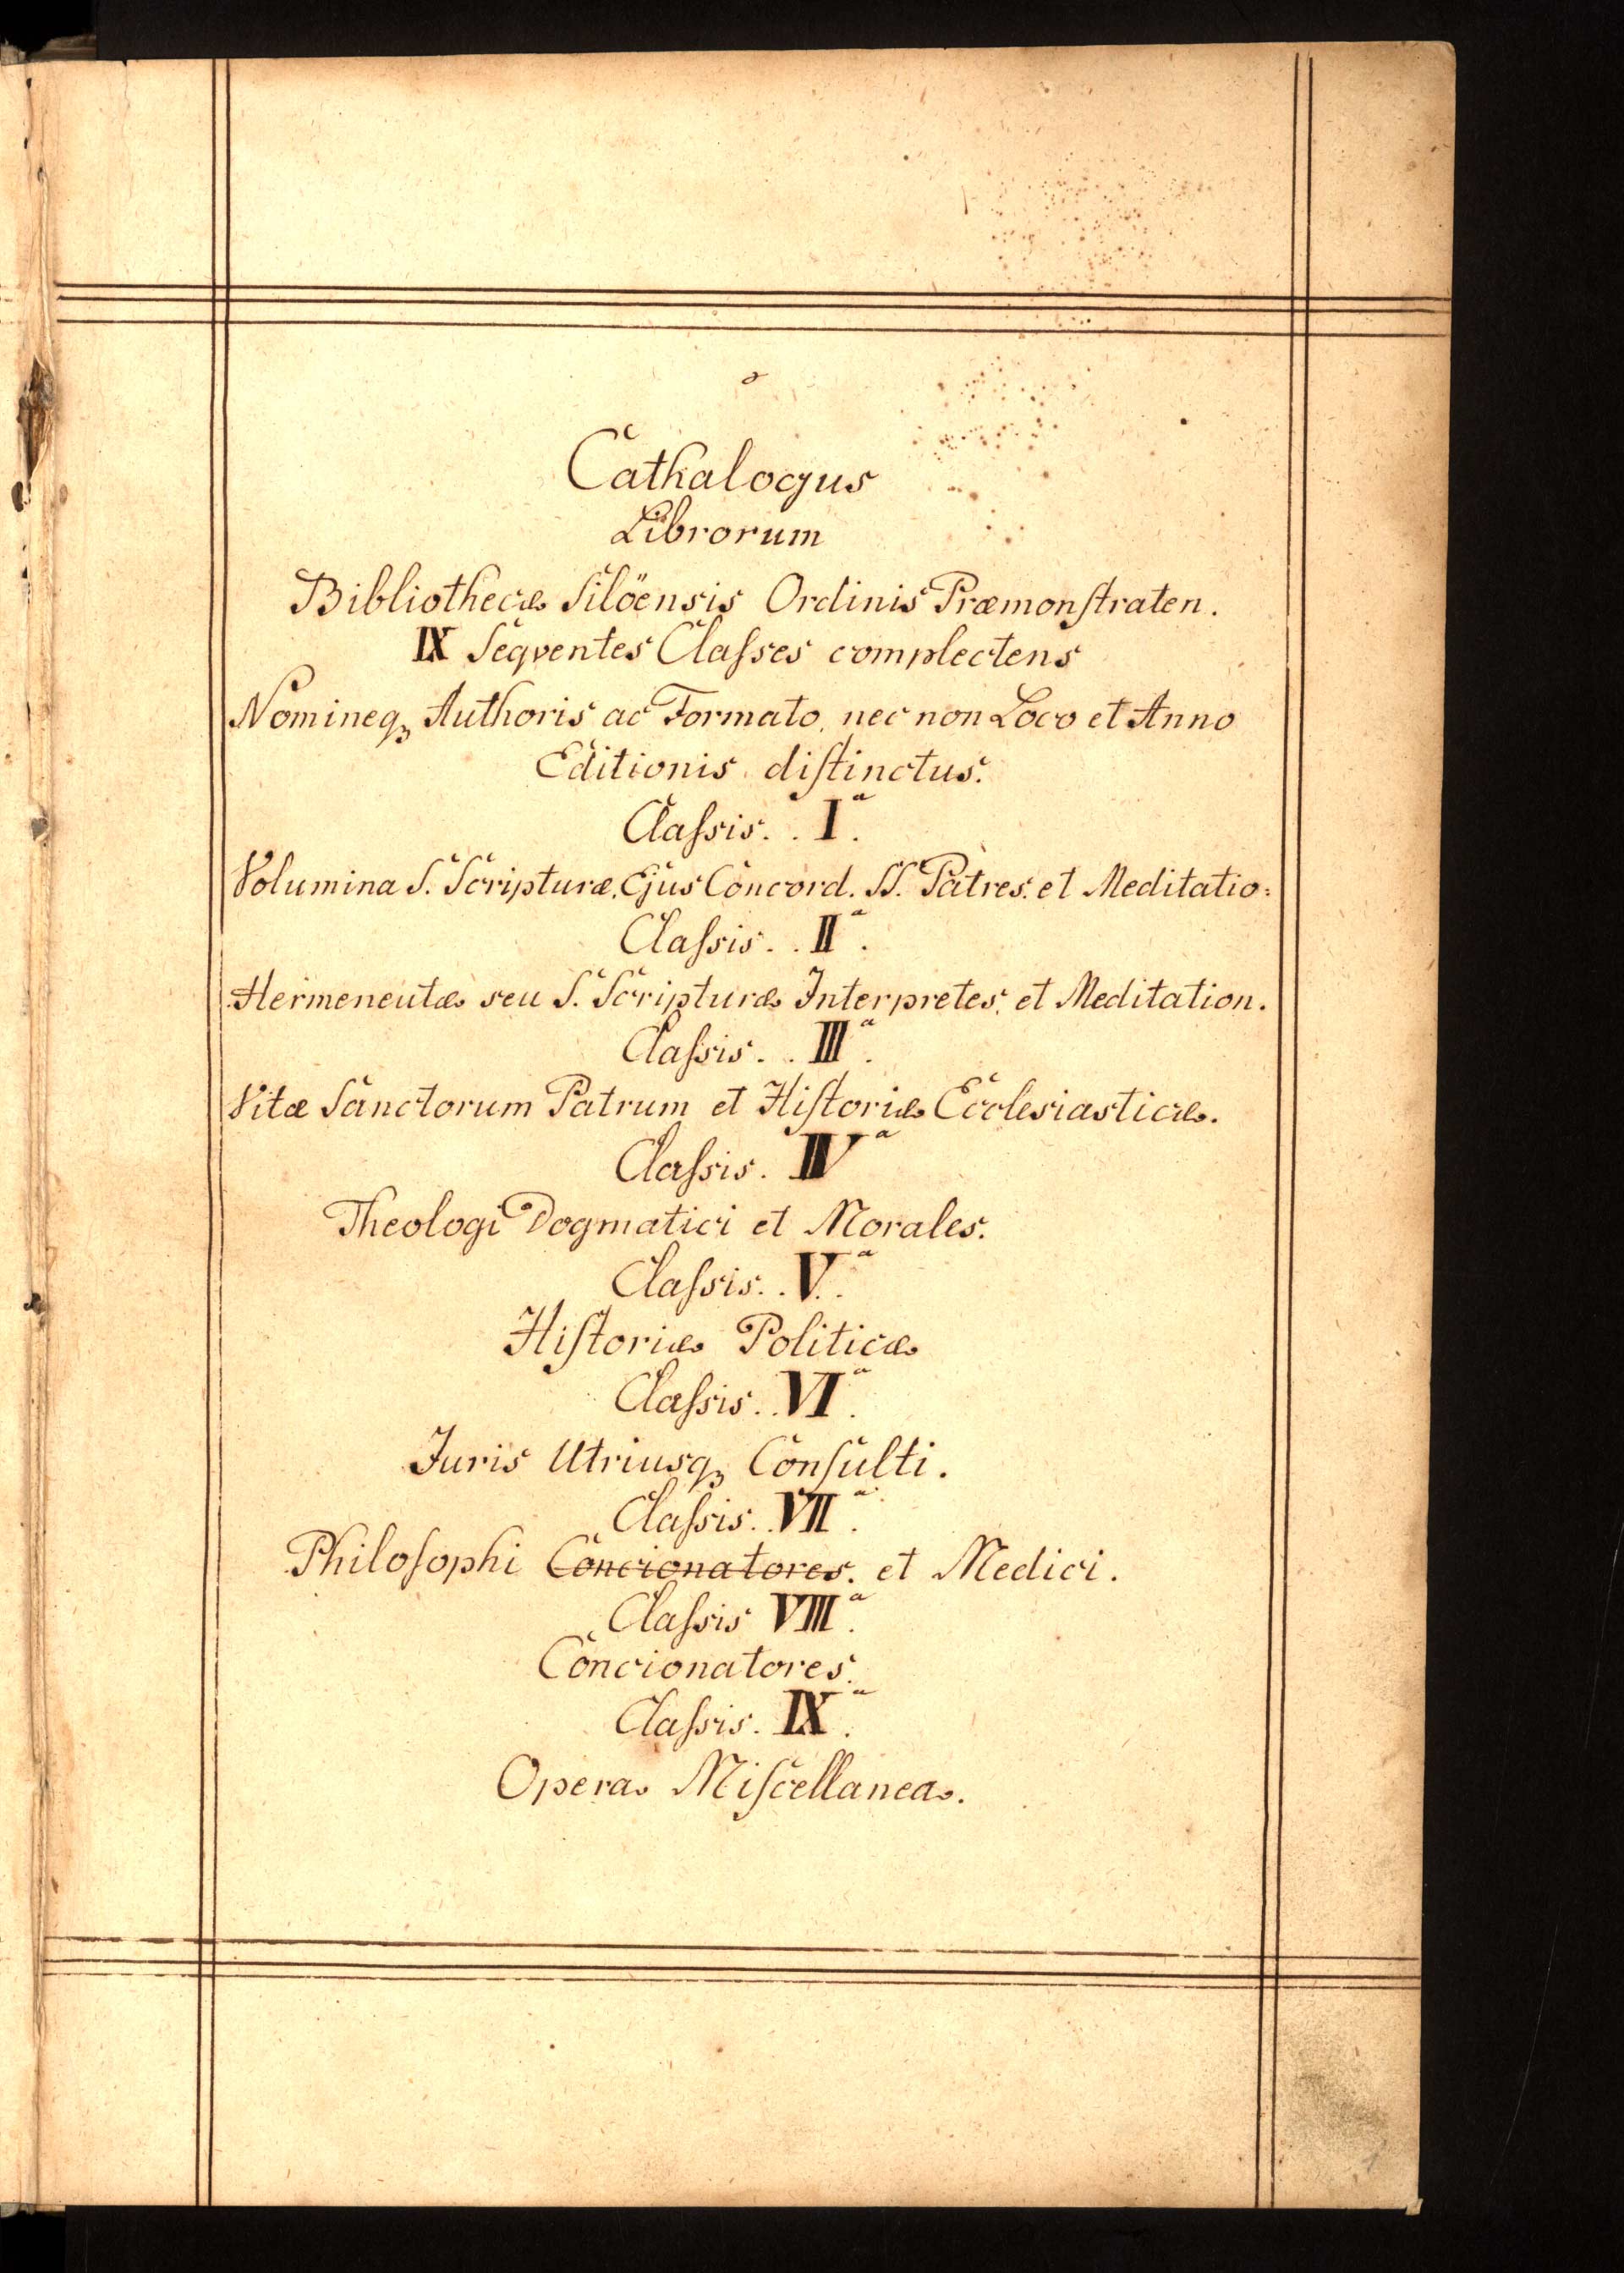 Cathalogus
Librorum
Bibliothecæ Silöensis Ordinis Præmonſtraten.
IX Seqventes Claſses complectens
Nomineqꝫ Authoris ac Formato, nec non Loco et Anno
Editionis diſtinctus.
Claſsis. . I.ª
Volumina S. Scripturæ, Ejus Concord. SS. Patres. et Meditatio:
Claſsis. . II.ª
Hermeneutæ seu S. Scripturæ Interpretes, et Meditation.
Claſsis. . III.ª
Vitæ Sanctorum Patrum et Hiſtoriæ Ecclesiasticæ.
Claſsis. IVª
Theologi Dogmatici et Morales.
Claſsis. . V.ª
Hiſtoriæ Politicæ
Claſsis. . VI.ª
Juris Utriusqꝫ Conſulti.
Claſsis. . VII.ª
Philoſophi Concionatores. et Medici.
Claſsis VIII.ª
Concionatores.
Claſsis. IX.ª
Opera Miſcellanea.
1